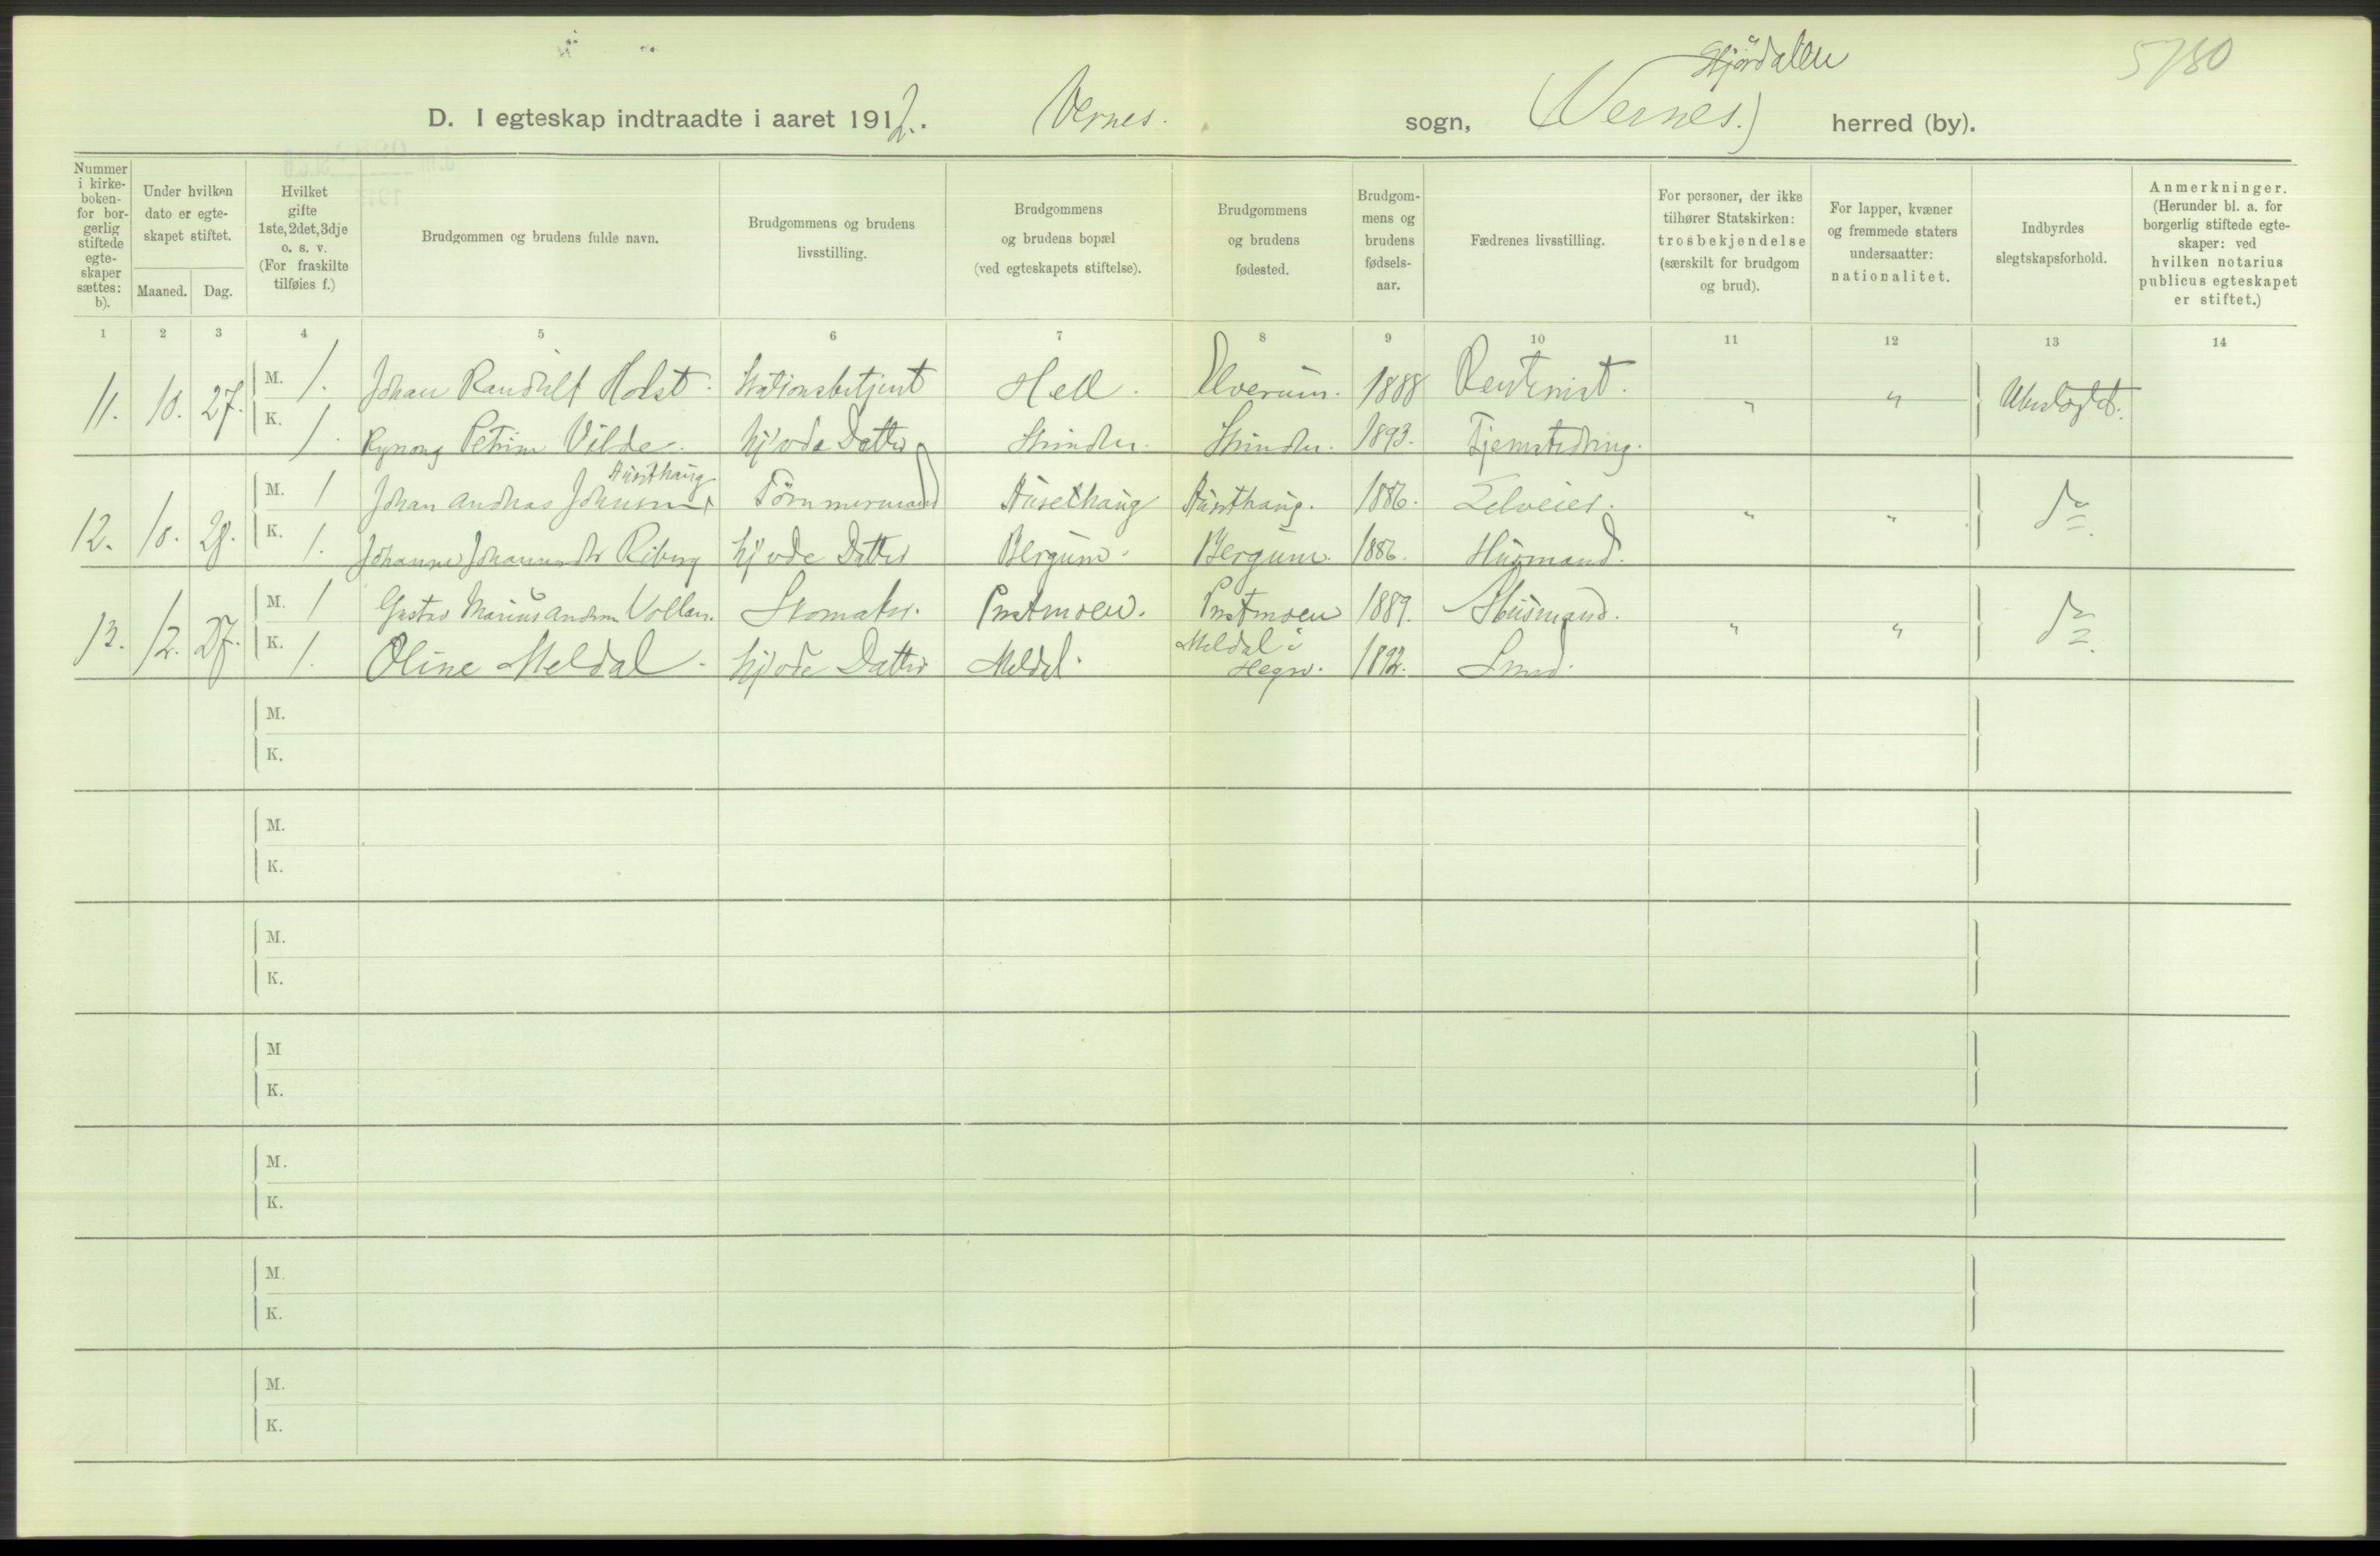 Stjørdalen
5780
D. I egteskap indtraadte i aaret 1912. Vernes. sogn, (Vernes.) herred (by).
Nummer i kirke-boken- for bor-gerlig stiftede egte-skaper sættes: b).
Under hvilken dato er egte-skapet stiftet.
Maaned. Dag.
Hvilket gifte 1ste, 2det, 3dje o. s. v. (For fraskilte tilføies f.)
Brudgommen og brudens fulde navn.
Brudgommens og brudens livsstilling.
Brudgommens og brudens bopæl (ved egteskapets stiftelse).
Brudgommens og brudens fødested.
Brudgom-mens og brudens fødsels-aar.
Fædrenes livsstilling.
For personer, der ikke tilhører Statskirken: trosbekjendelse (særskilt for brudgom og brud).
For lapper, kvæner og fremmede staters undersaatter: nationalitet.
Indbyrdes slegtskapsforhold.
Anmerkninger. (Herunder bl. a. for borgerlig stiftede egte-skaper: ved hvilken notarius publicus egteskapet er stiftet.)
1 2 3 4 5 6 7 8 9 10 11 12 13 14
11. 10. 27. M. 1. Johan Randulf Holst. Stationsbetjent Hell. Elverum. 1888 Rentenist. " " Ubeslægtet.
K. 1. Petrine Vilde. hjv. Datter Strinden. Strinden. 1893.
Austhaug
12. 10. 29. M. 1 Johan Andreas Johnsen Tømmermand Ausethaug Austhaug. 1886. Selveier. " " do
K. 1. Johanne Riberg hjv. Datter Bergum. Bergum. 1886. Husmand.
13. 12. 27. M. 1 Gustav Marius Andersen Vollan. Skomaker. Prestmoen. Prestmoen 1889. Husmand. " " do
K. 1. Oline Meldal. hjv. Datter Meldal. Meldal i Hegra. 1892. Smed.
M.
K.
M.
K.
M.
K.
M
K.
M.
K.
M.
K.
M.
K.